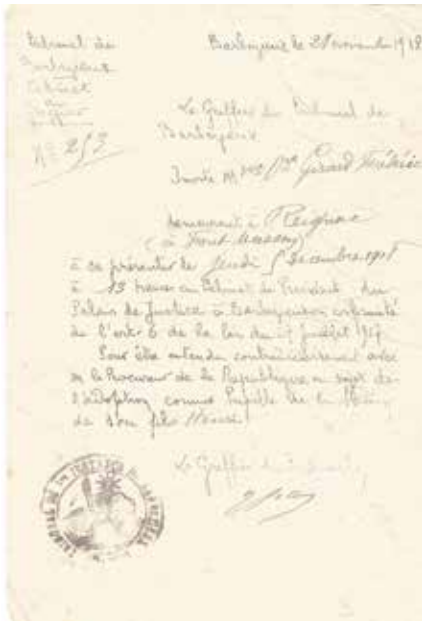 Tribunal de
Barbezieux
Cabinet
du
Greffier
N° 253
Barbezieux le 28 novembre 1918
Le Greffier du Tribunal de
Barbezieux
Invite M Girard
demeurant à Reignac
à ce présenter le Jeudi 5 Décembre 1918
à 13 heures au Cabinet du Président du
Palais de Justice à Barbezieux
de l'art 6 de la loi du 27 Juillet 1917
Pour être entendu contradictoirement avec
M le Procureur de la République au sujet de
l'adoption comme Pupille de la Nation
de son fils Henri
Le Greffier du Tribunal